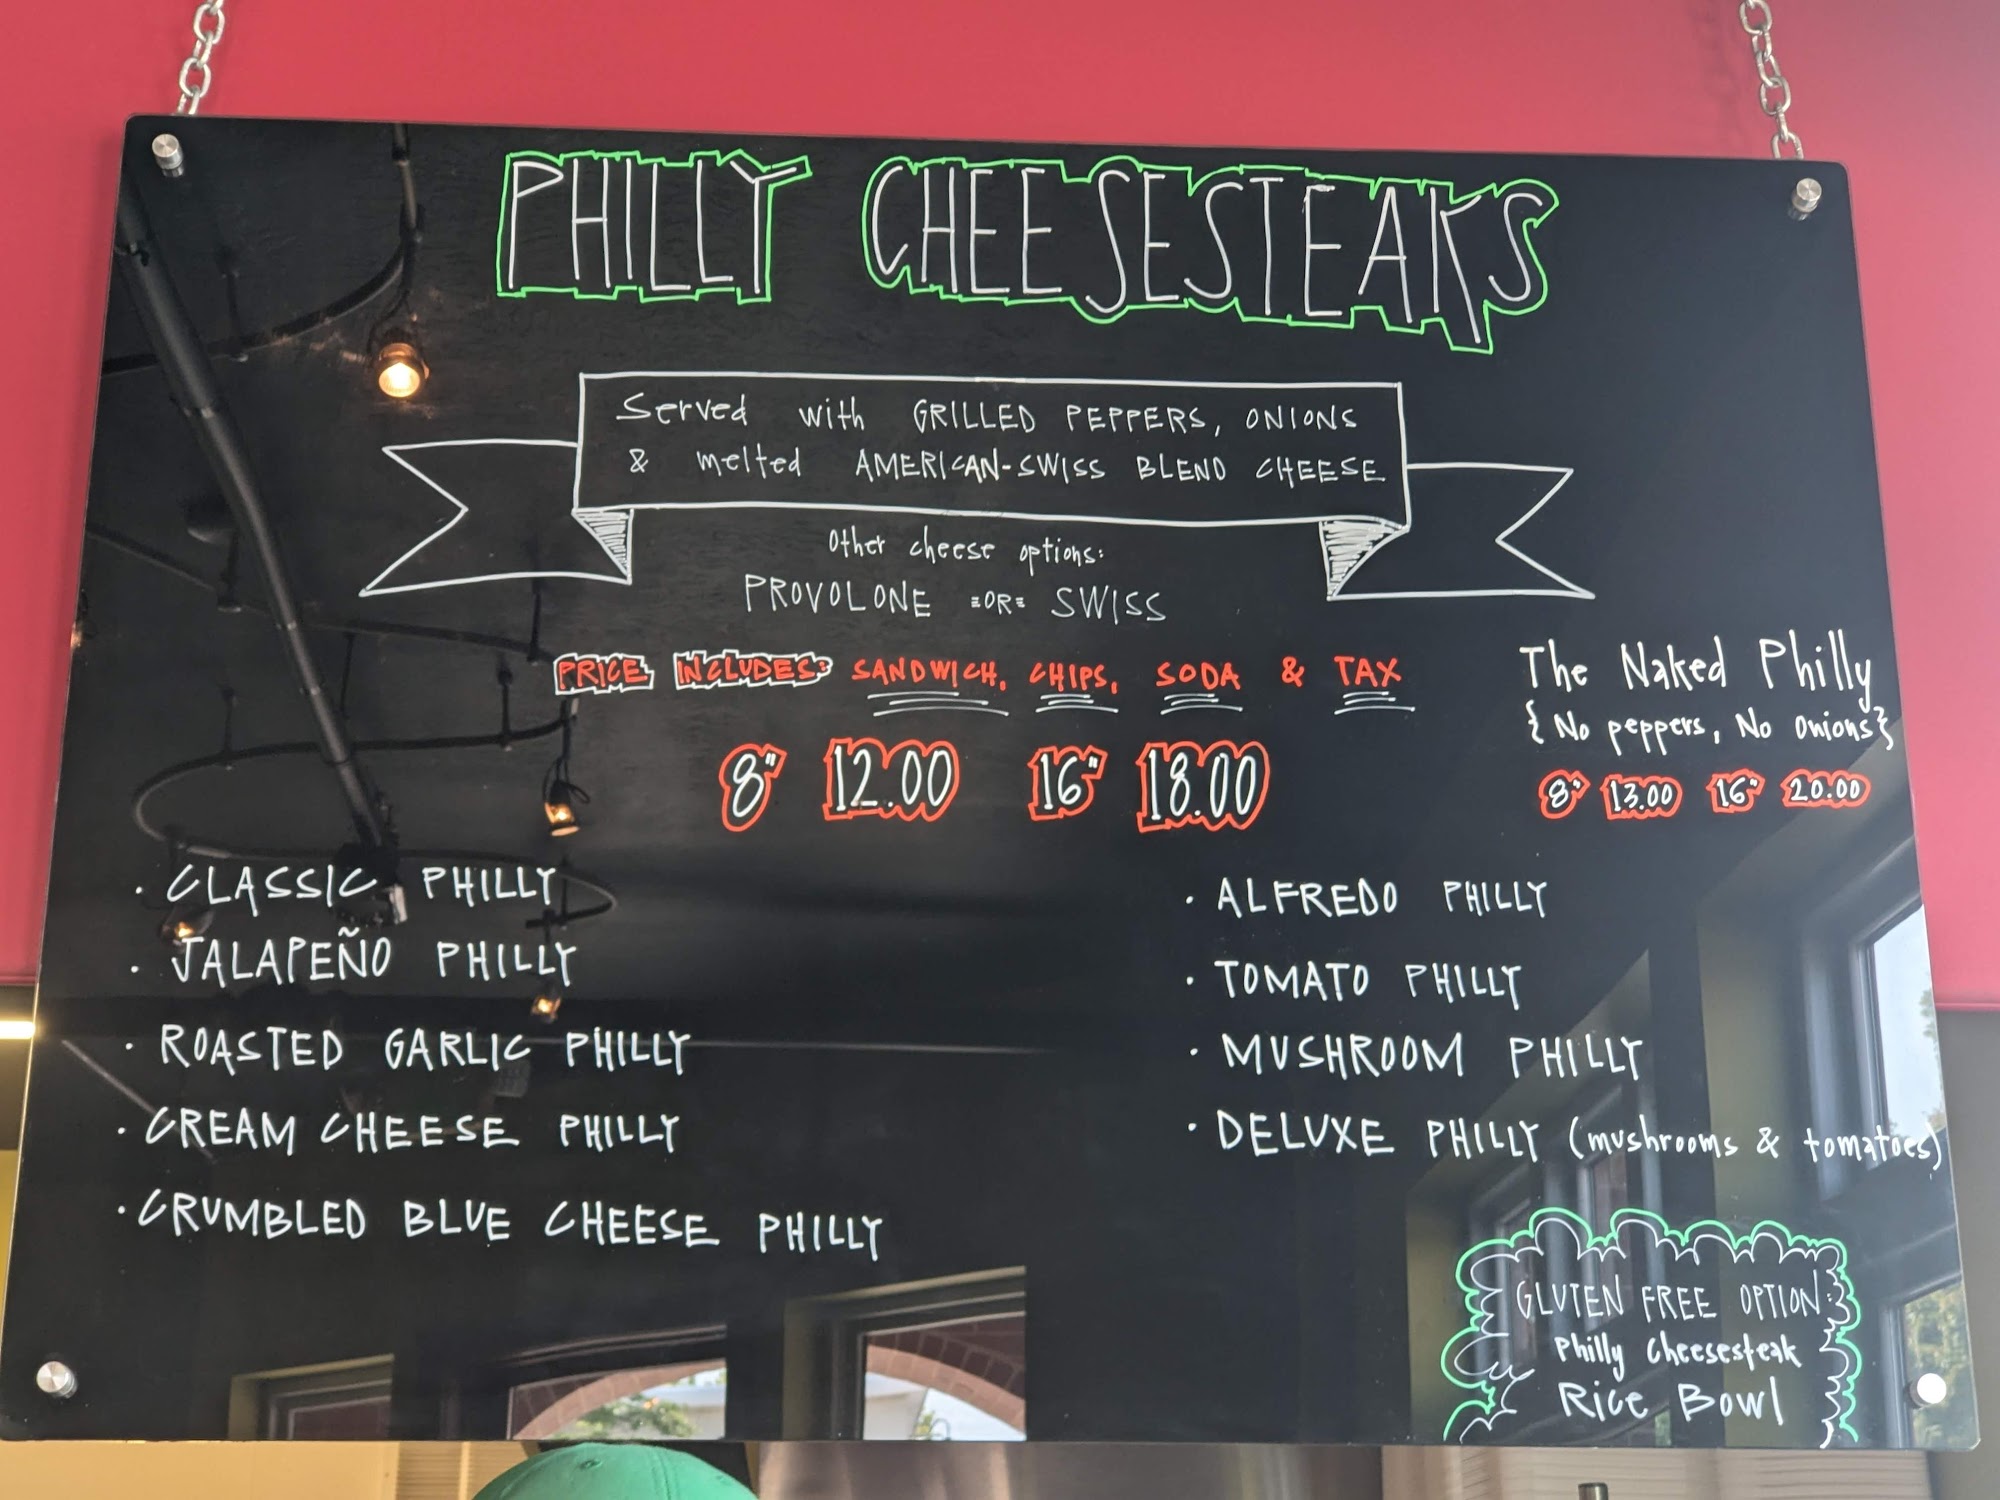 PHILLY CHEESESTEAKS
Served with GRILLED PEPPERS, ONIONS
& melted AMERICAN-SWISS BLEND CHEESE
Other cheese options:
PROVOLONE =OR= SWISS
PRICE INCLUDES: SANDWICH, CHIPS, SODA & TAX
8" 12.00 16" 18.00
The Naked Philly
{No peppers, No onions}
8" 13.00 16" 20.00
· CLASSIC PHILLY
· JALAPEÑO PHILLY
· ROASTED GARLIC PHILLY
· CREAM CHEESE PHILLY
· CRUMBLED BLUE CHEESE PHILLY
· ALFREDO PHILLY
· TOMATO PHILLY
· MUSHROOM PHILLY
· DELUXE PHILLY (mushrooms & tomatoes)
GLUTEN FREE OPTION:
Philly Cheesesteak
Rice Bowl